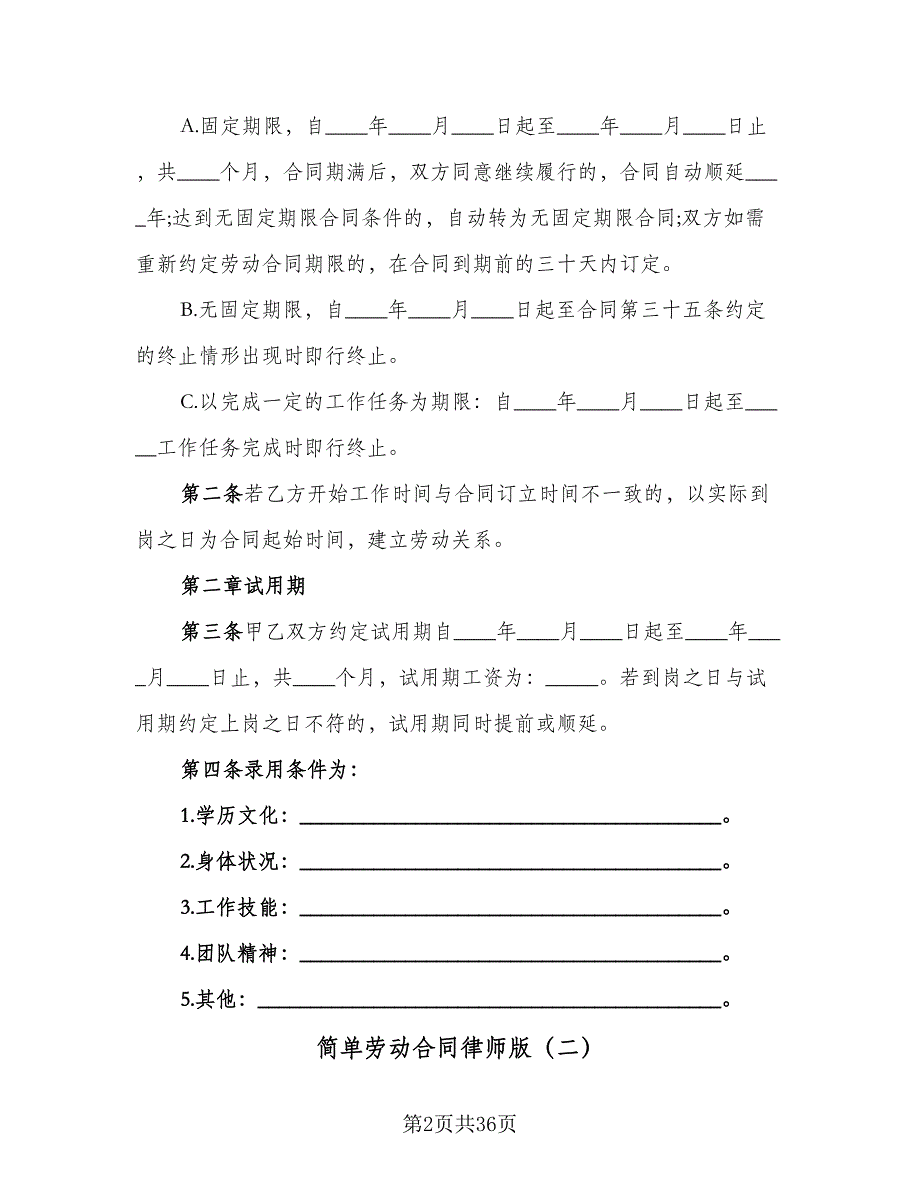 A.固定期限，自____年____月____日起至____年____月____日止
，共____个月，合同期满后，双方同意继续履行的，合同自动顺延___
_年;达到无固定期限合同条件的，自动转为无固定期限合同;双方如需
重新约定劳动合同期限的，在合同到期前的三十天内订定。
B.无固定期限，自____年____月____日起至合同第三十五条约定
的终止情形出现时即行终止。
C.以完成一定的工作任务为期限：自____年____月____日起至___
__工作任务完成时即行终止。
第二条若乙方开始工作时间与合同订立时间不一致的，以实际到
岗之日为合同起始时间，建立劳动关系。
第二章试用期
第三条甲乙双方约定试用期自____年____月____日起至____年___
_月____日止，共____个月，试用期工资为：_____。若到岗之日与试
用期约定上岗之日不符的，试用期同时提前或顺延。
第四条录用条件为：
1.学历文化：________________________________________。
2.身体状况：________________________________________。
3.工作技能：________________________________________。
4.团队精神：________________________________________。
5.其他：____________________________________________。
简单劳动合同律师版（二）
第2页共36页